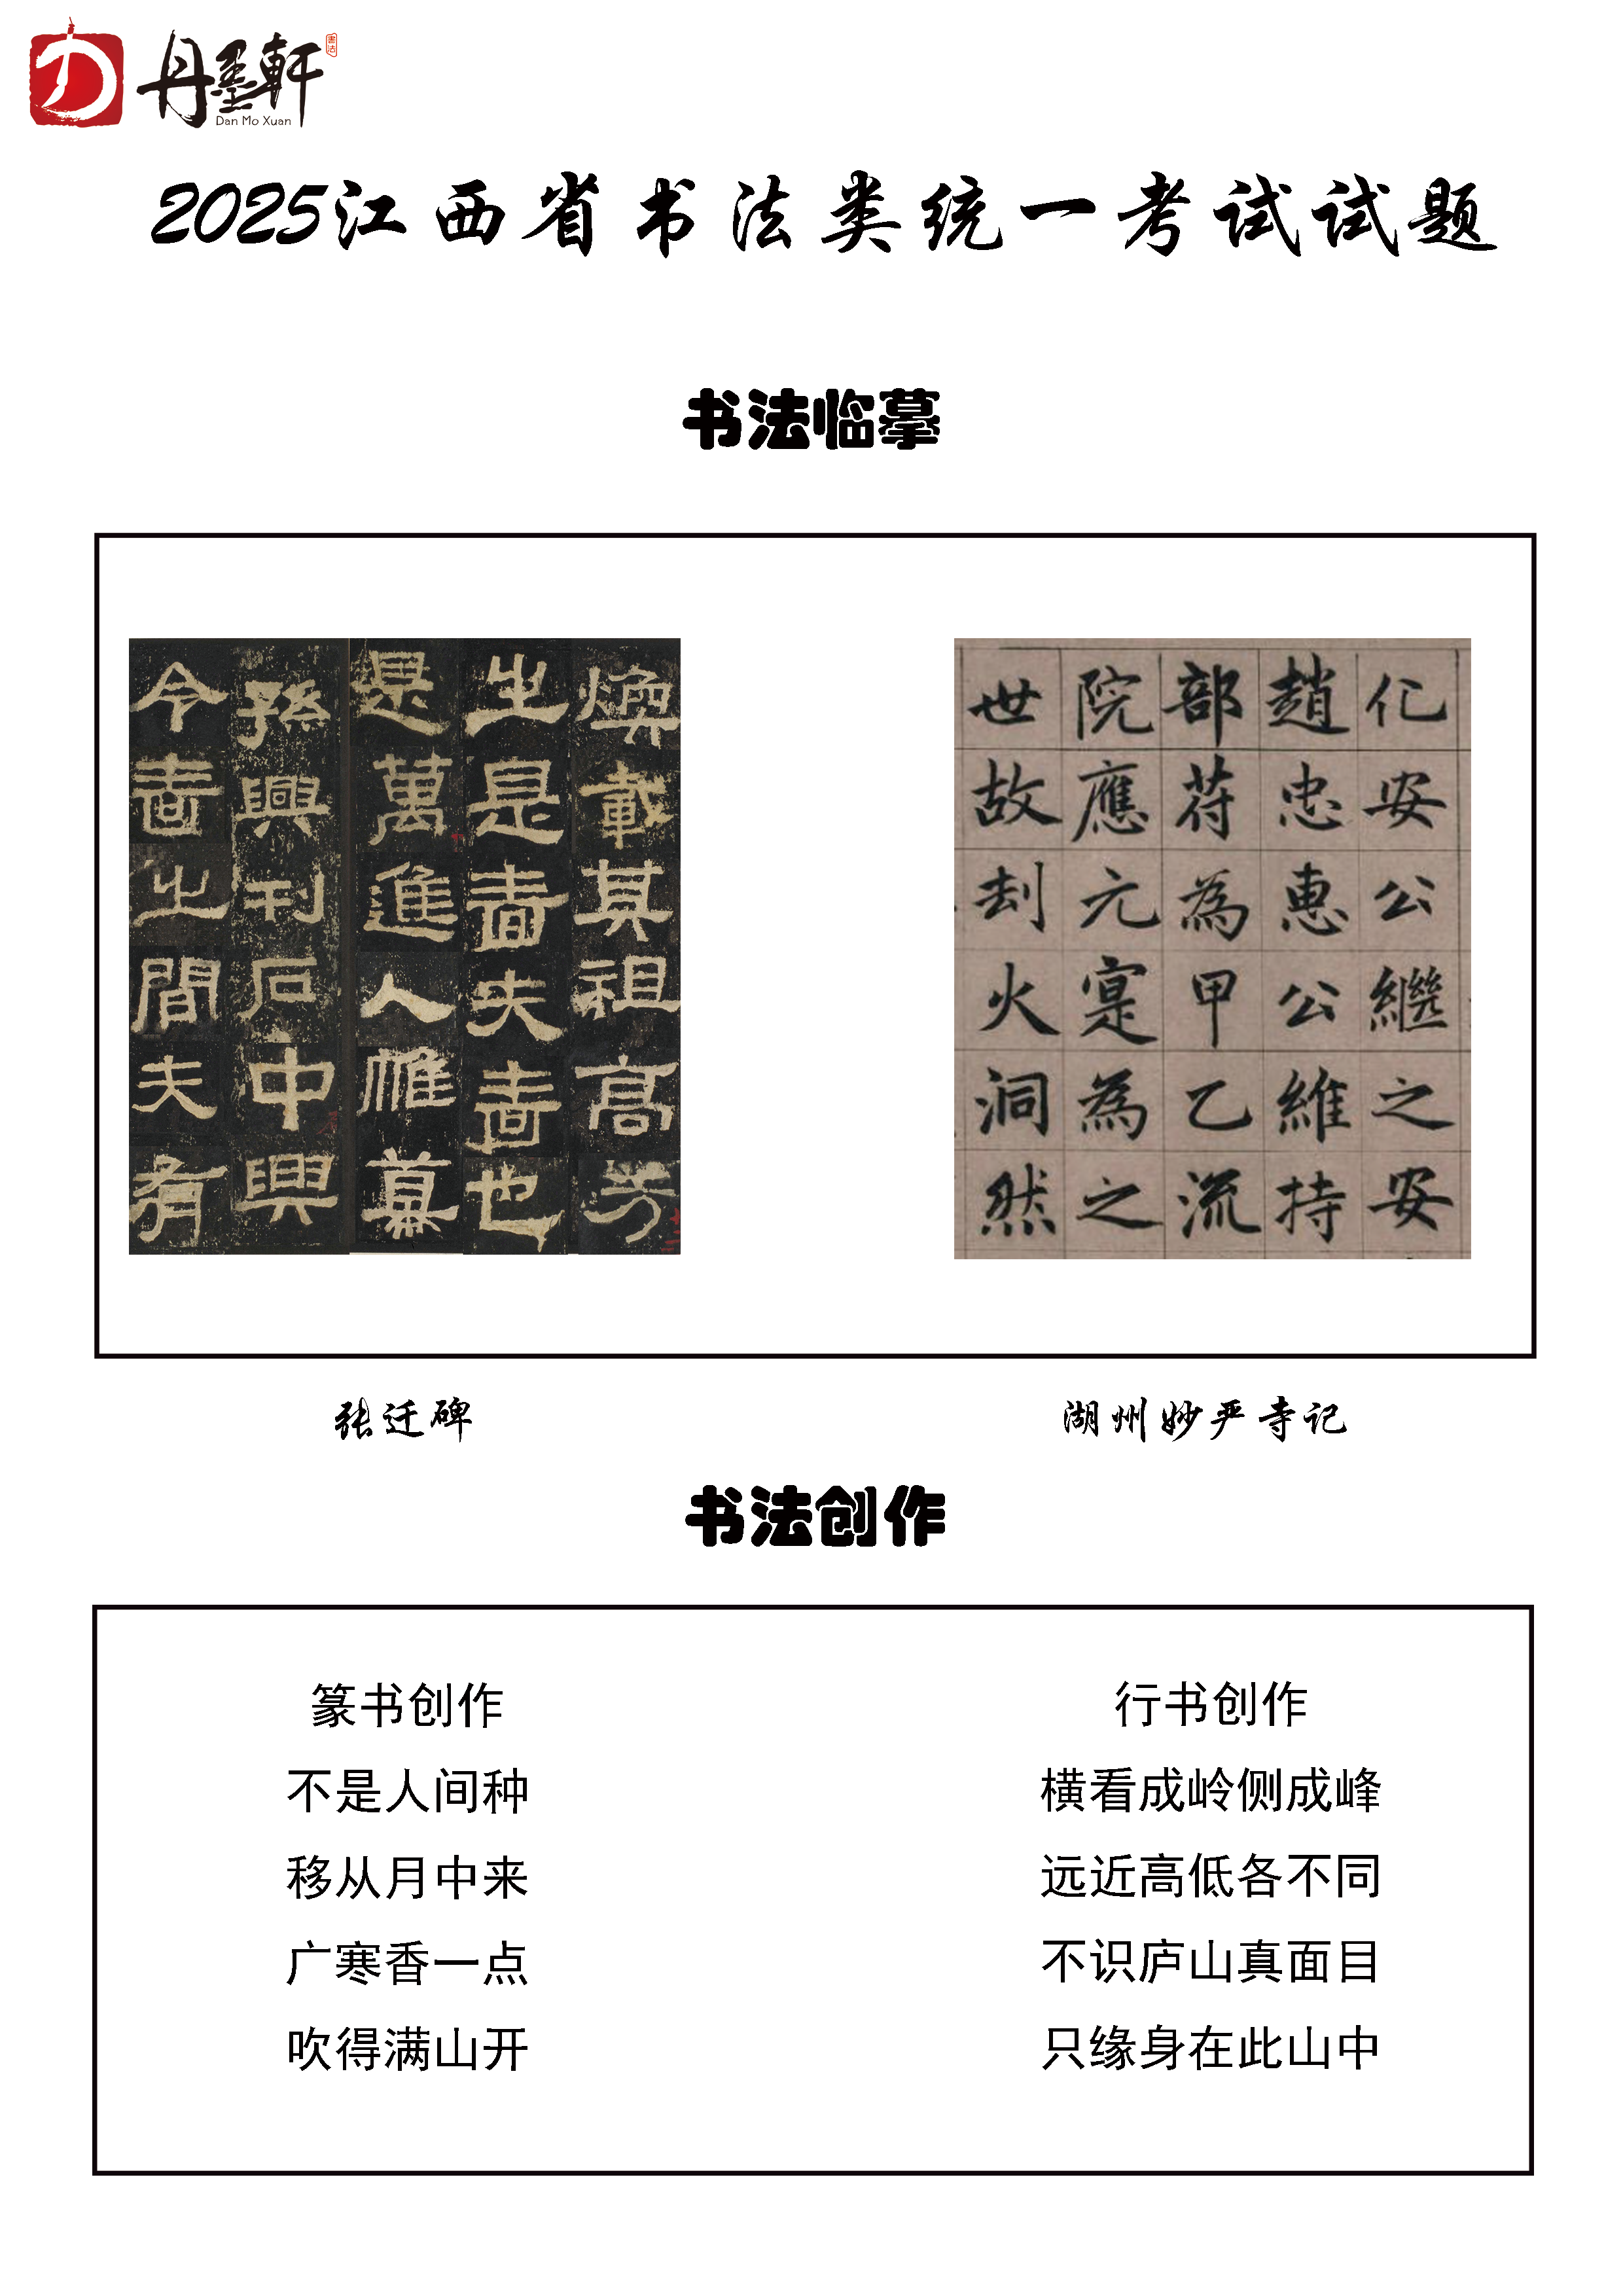 丹墨軒
书法
Dan Mo Xuan
2025江西省书法类统一考试试题
书法临摹
煥載其祖高
是夫也
是萬進人帷幕
孫興刊石中興
今之間夫有
化安公繼之安
趙忠惠公維持
部苻為甲乙流
院應元寔為之
世故刦火洞然
张迁碑
湖州妙严寺记
书法创作
篆书创作
不是人间种
移从月中来
广寒香一点
吹得满山开
行书创作
横看成岭侧成峰
远近高低各不同
不识庐山真面目
只缘身在此山中